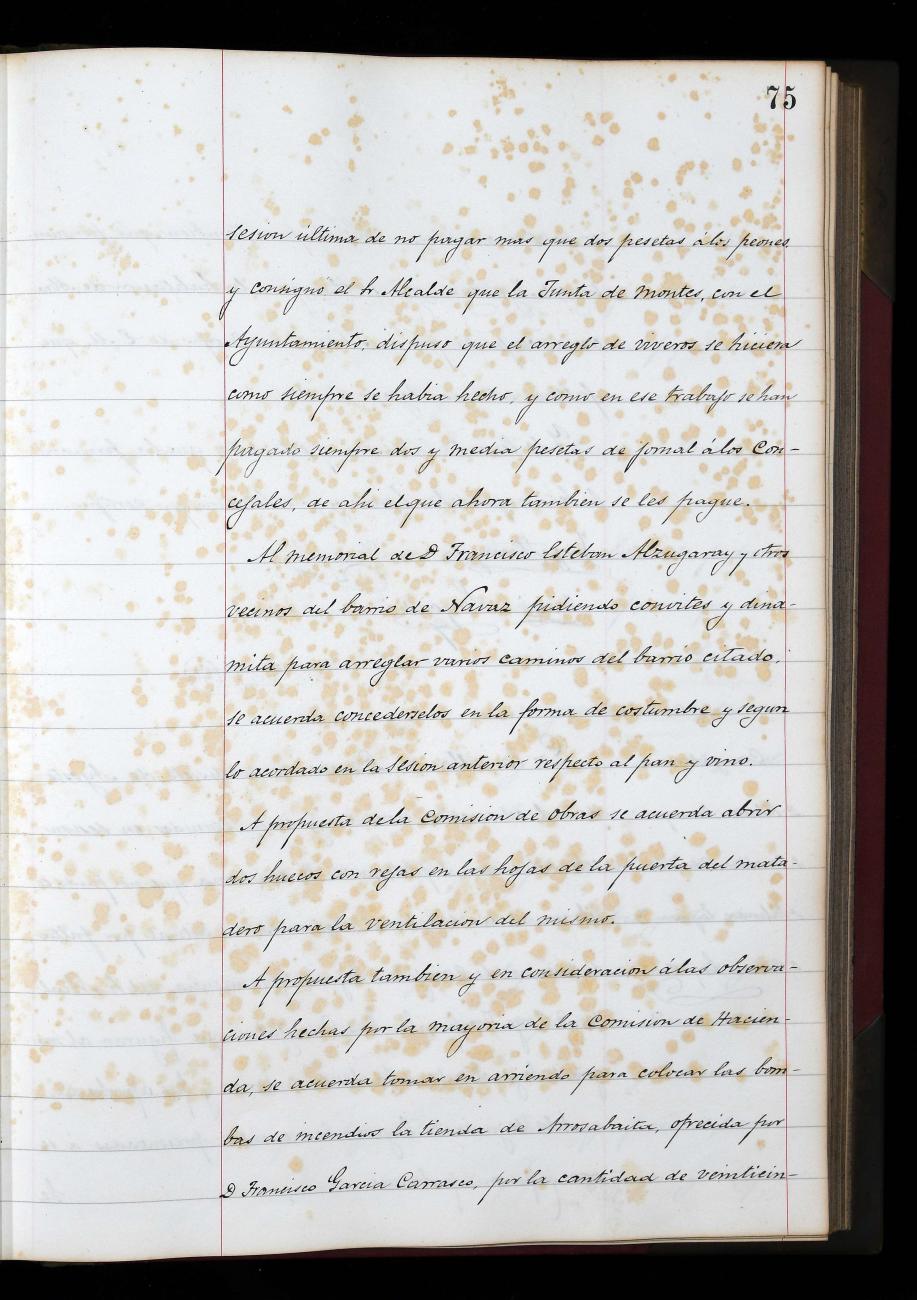 75
sesion última de no pagar mas que dos pesetas álos peones
y consignó el Sr Alcalde que la Junta de montes, con el
Ayuntamiento, dispuso que el arreglo de viveros se hiciera
como siempre se habia hecho, y como en ese trabajo se han
pagado siempre dos y media pesetas de jornal álos Con-
cejales, de ahi el que ahora tambien se les pague.
Al memorial de D Francisco Esteban Alzugaray y otros
vecinos del barrio de Navaz pidiendo convites y dina-
mita para arreglar varios caminos del barrio citado,
se acuerda concederselos en la forma de costumbre y segun
lo acordado en la sesion anterior respecto al pan y vino.
A propuesta dela Comision de obras se acuerda abrir
dos huecos con rejas en las hojas de la puerta del mata-
dero para la ventilacion del mismo.
A propuesta tambien y en consideracion álas observa-
ciones hechas por la mayoria de la Comision de Hacien-
da, se acuerda tomar en arriendo para colocar las bom-
bas de incendios la tienda de Arrosabaita, ofrecida por
D Francisco Garcia Carrasco, por la cantidad de veinticin-